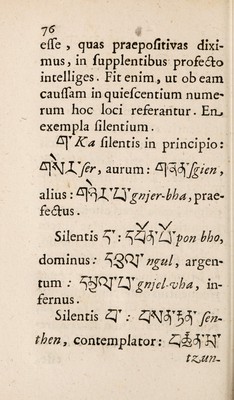 76
esse, quas praepositivas dixi-
mus, in supplentibus profecto
intelliges. Fit enim, ut ob eam
caussam in quiescentium nume-
rum hoc loci referantur. En
exempla silentium.
Ka silentis in principio:
ser, aurum: sgien,
alius: gnjer-bha, prae-
fectus.
Silentis : pon bho,
dominus: ngul, argen-
tum: gnjel-vha, in-
fernus.
Silentis : sen-
then, contemplator:
tzun-